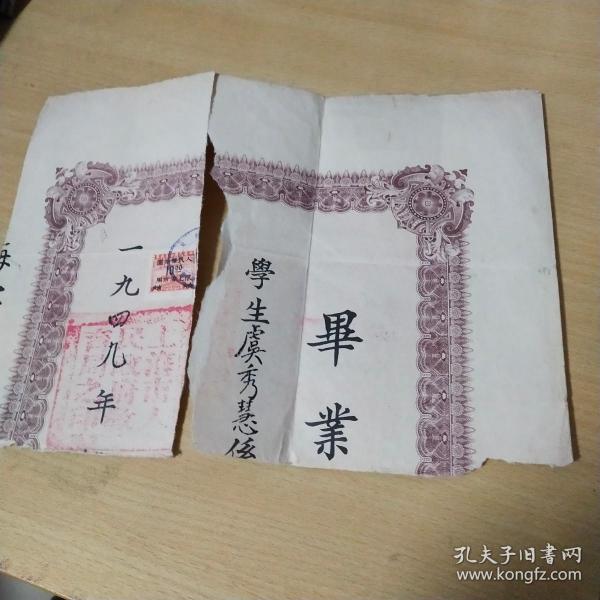 畢業
學生虞秀慧係
一九四九年
孔夫子旧書网
www.kongfz.com